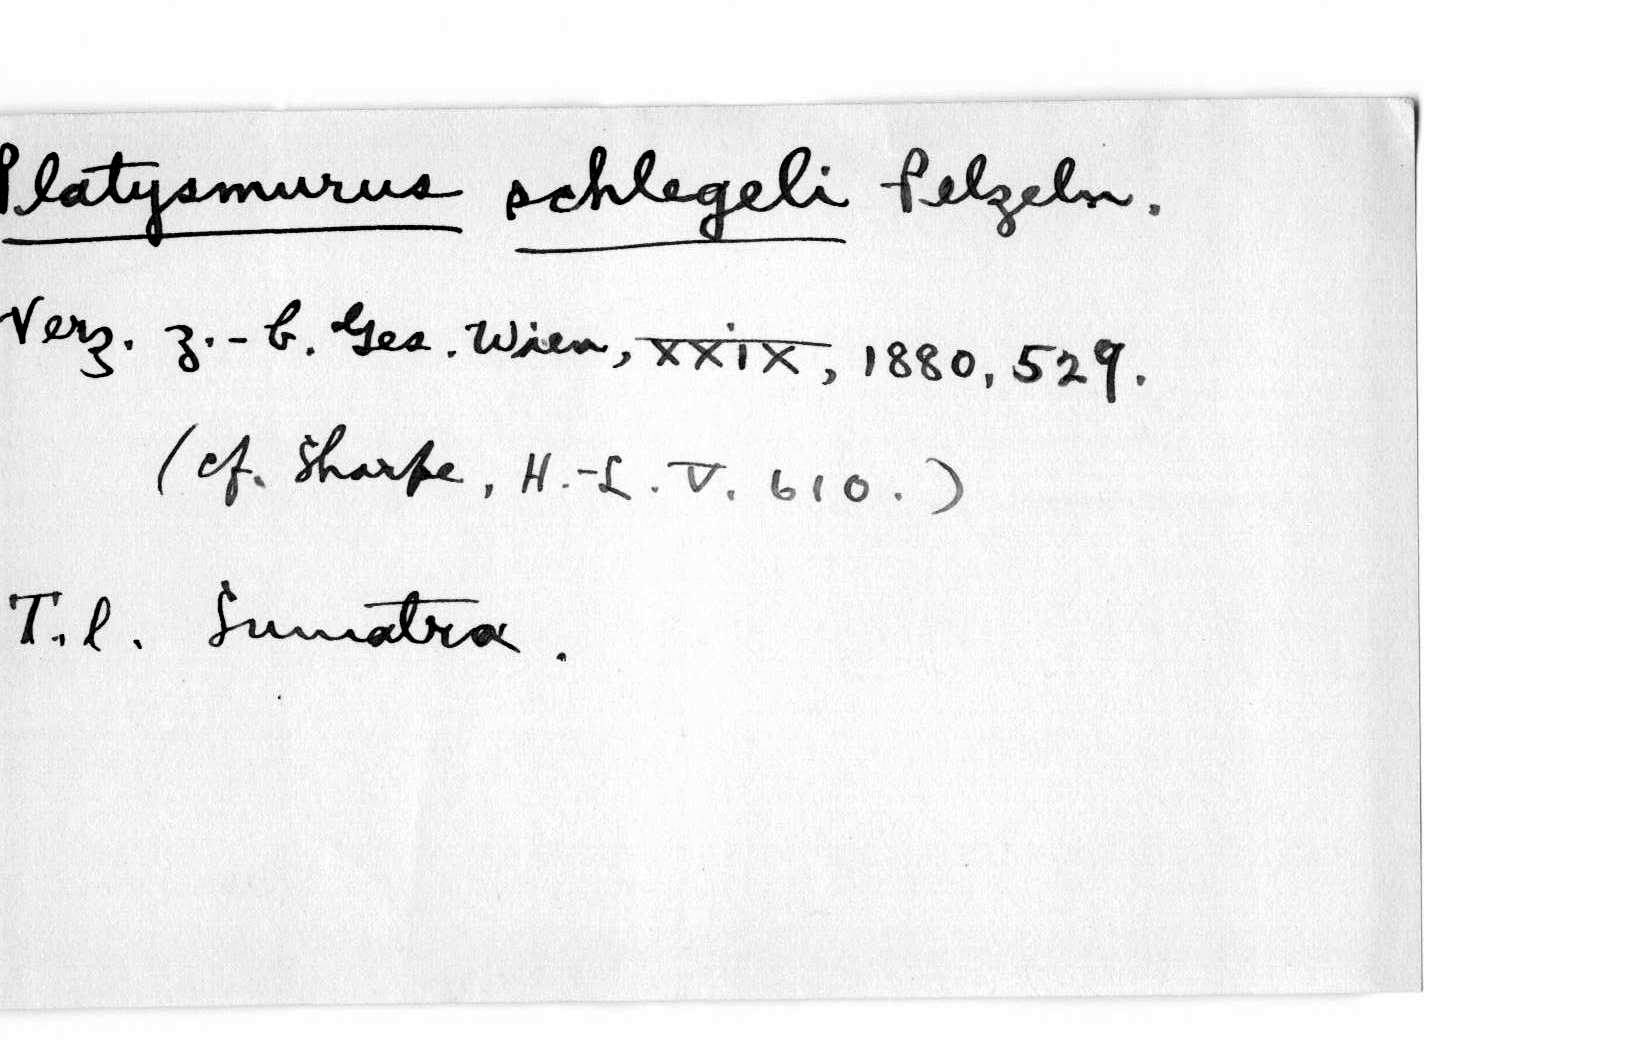 Platysmurus schlegeli Pelzeln.
Verz. z.-b. Ges. Wien, XXIX, 1880, 529.
(cf. Sharpe, H.-L. V. 610.)
T.l. Sumatra.